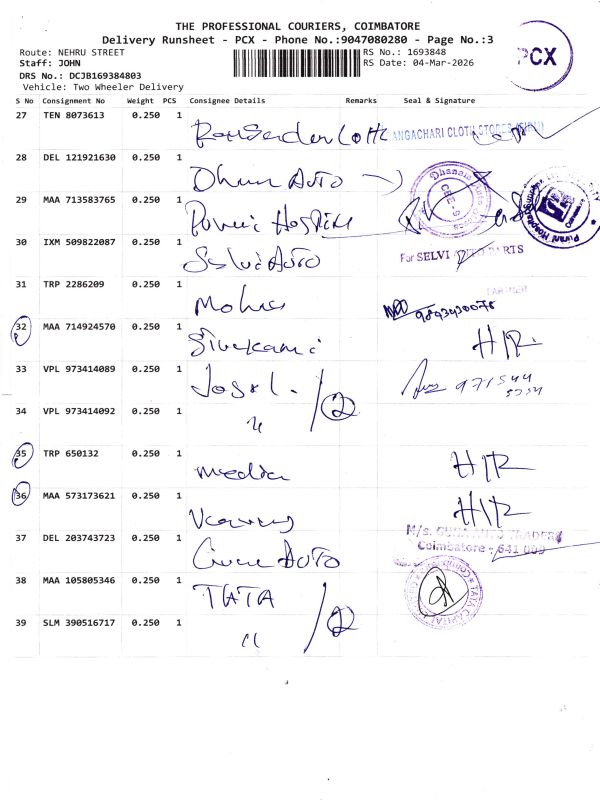 THE PROFESSIONAL COURIERS, COIMBATORE
Delivery Runsheet - PCX - Phone No.:9047080280 - Page No.:3
PCX
Route: NEHRU STREET
RS No.: 1693848
Staff: JOHN
RS Date: 04-Mar-2026
DRS No.: DCJB169384803
Vehicle: Two Wheeler Delivery
S No Consignment No Weight PCS Consignee Details Remarks Seal & Signature
27 TEN 8073613 0.250 1
ANGACHARI CLOTH STORES
28 DEL 121921630 0.250 1 Dhun AUTO
29 MAA 713583765 0.250 1
30 IXM 509822087 0.250 1 Selvi AUTO
For SELVI AUTO PARTS
31 TRP 2286209 0.250 1
PARTNER
32 MAA 714924570 0.250 1 Sivekami H/R
33 VPL 973414089 0.250 1
34 VPL 973414092 0.250 1 " /2
35 TRP 650132 0.250 1 media H/R
36 MAA 573173621 0.250 1 H/R
37 DEL 203743723 0.250 1 AUTO
M/s. TRADERS
Coimbatore - 641 009
38 MAA 105805346 0.250 1 TATA
TATA CAPITAL
39 SLM 390516717 0.250 1 " /2